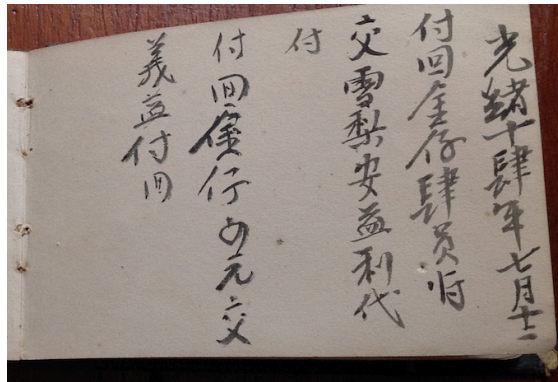 光緒十肆年七月十二
付回金仔肆員
交雪梨安益利代
付
付回金仔 元交
義益付回